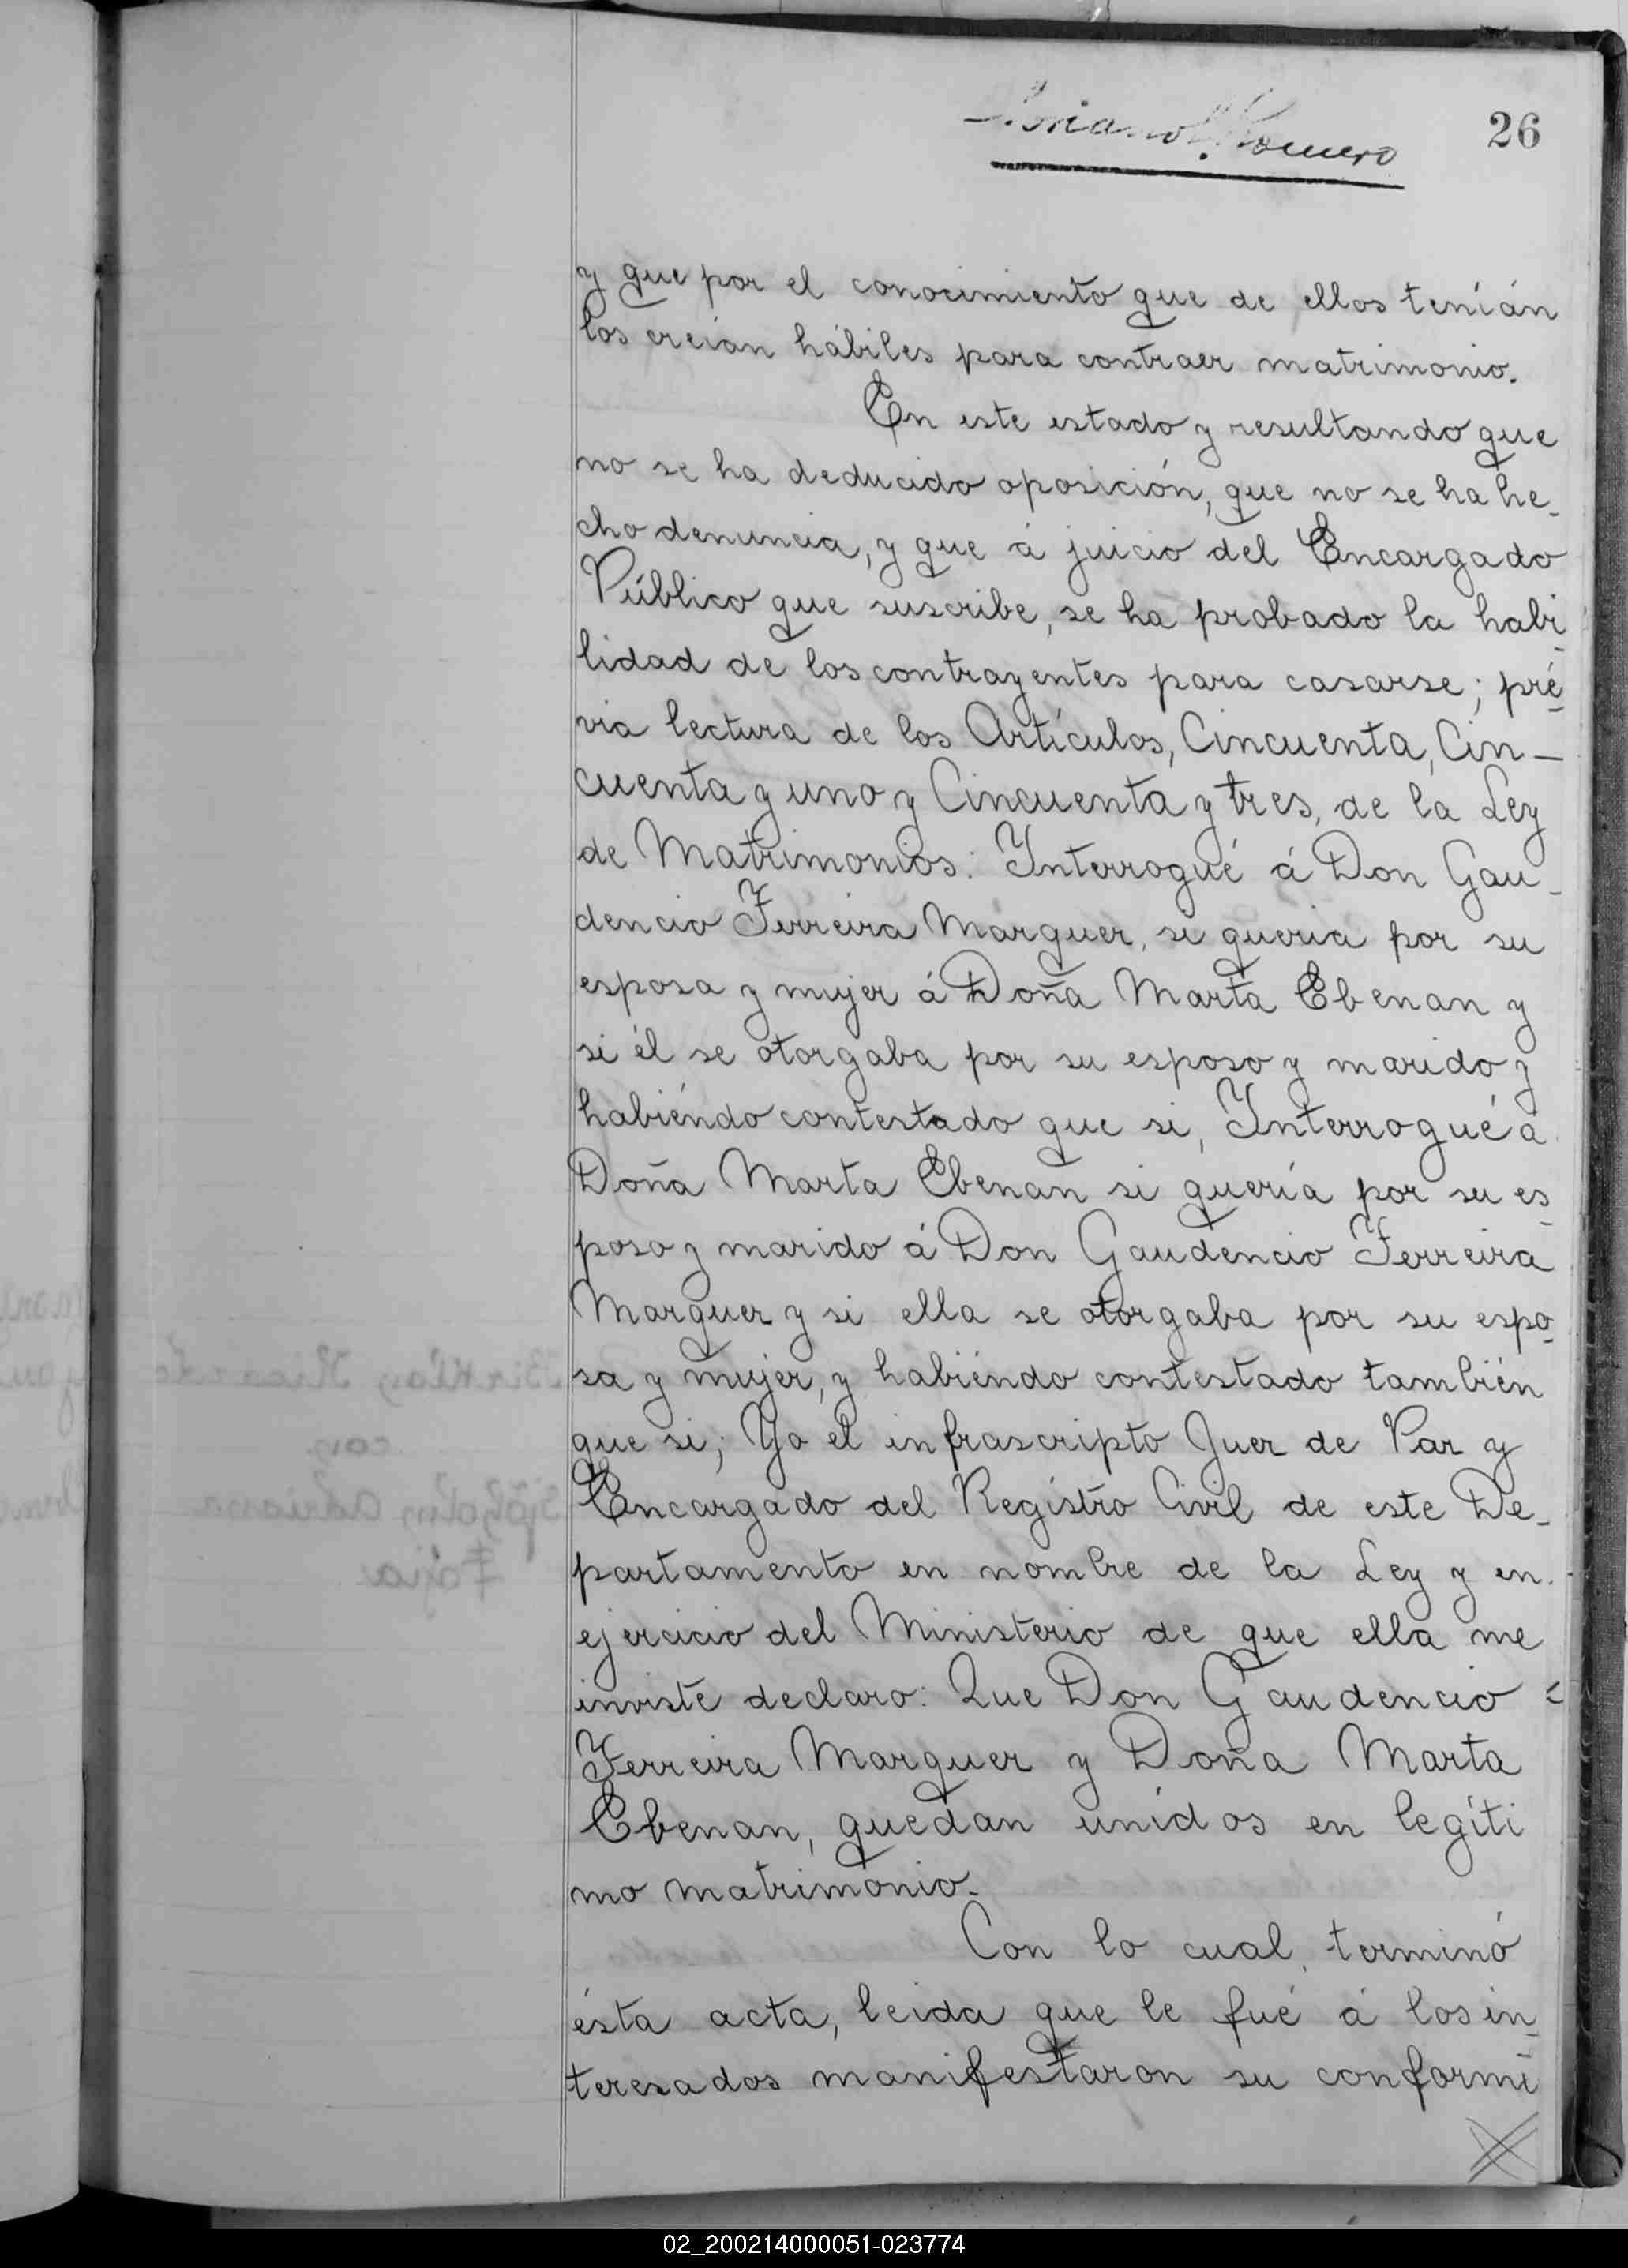 Romero
26
y que por el conocimiento que de ellos tenían
los creían hábiles para contraer matrimonio.
En este estado y resultando que
no se ha deducido oposición, que no se ha he-
cho denuncia, y que á juicio del Encargado
Público que suscribe, se ha probado la habi-
lidad de los contrayentes para casarse; pré-
via lectura de los Artículos, Cincuenta, Cin-
cuenta y uno y Cincuenta y tres, de la Ley
de Matrimonios: Interrogué á Don Gau-
dencio Ferreira Marquez, si queria por su
esposa y mujer á Doña Marta Ebenan y
si él se otorgaba por su esposo y marido y
habiéndo contestado que si, Interrogué á
Doña Marta Ebenan si quería por su es-
poso y marido á Don Gaudencio Ferreira
Marquez y si ella se otorgaba por su espo-
sa y mujer, y habiéndo contestado también
que si; Yo el infrascripto Juez de Paz y
Encargado del Registro Civil de este De-
partamento en nombre de la Ley y en
ejercicio del Ministerio de que ella me
inviste declaro: Que Don Gaudencio
Ferreira Marquez y Doña Marta
Ebenan, quedan unidos en legíti
mo matrimonio.
Con lo cual, terminó
ésta acta, leida que le fué á los in-
teresados manifestaron su conformi
02_200214000051-023774